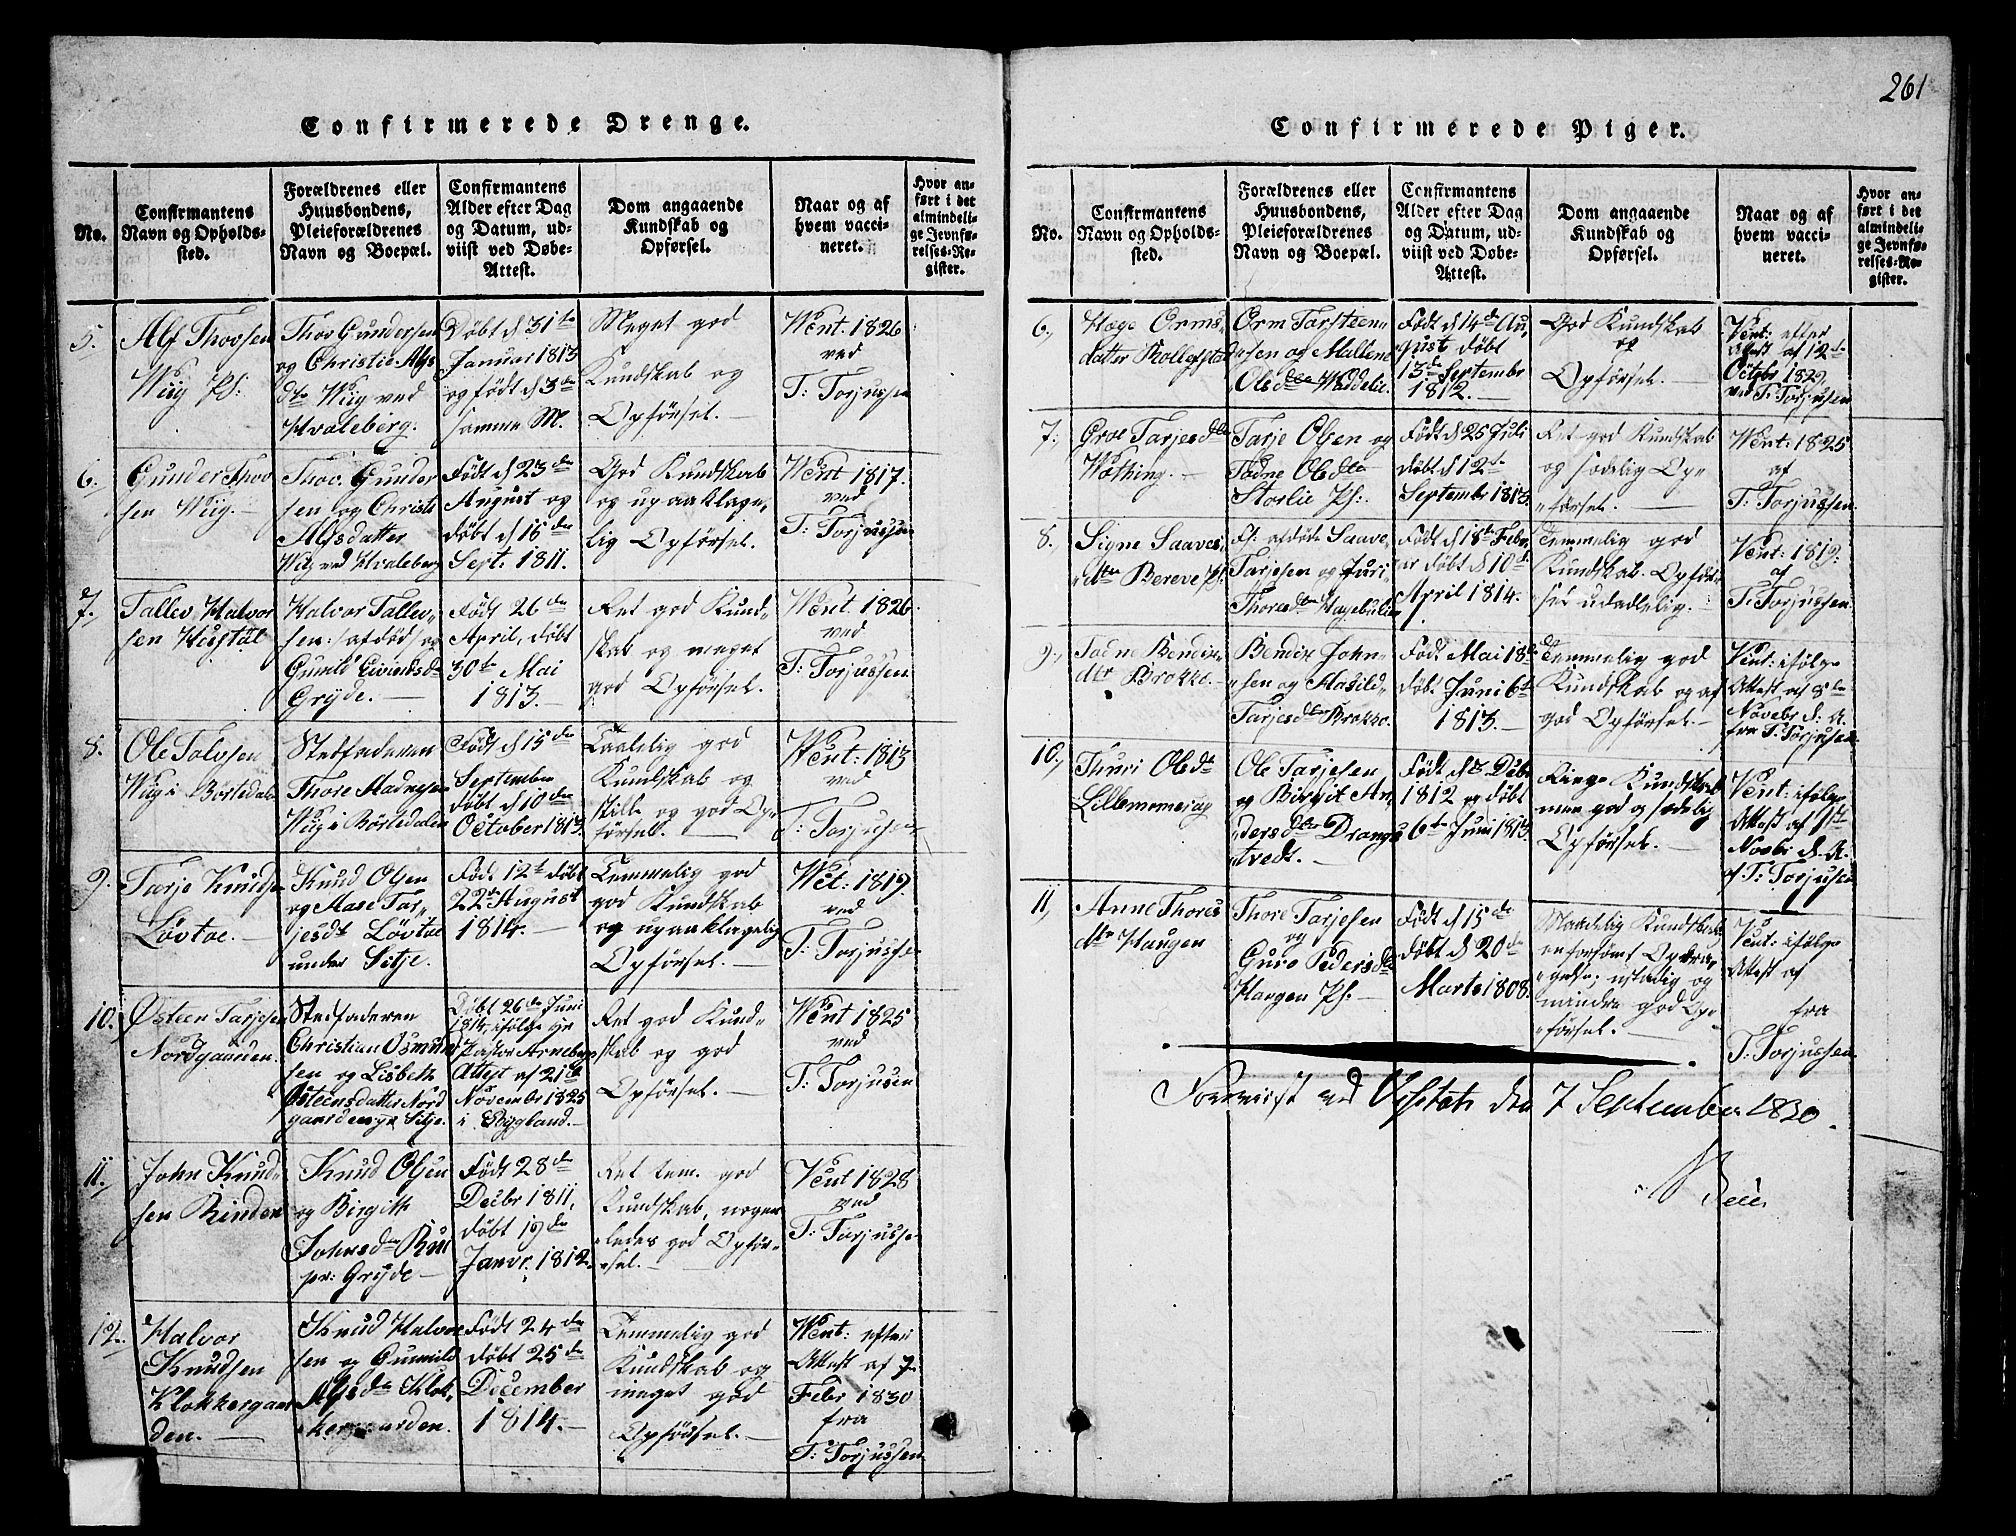 261
Confirmerede Drenge.
No.
Confirmantens
Navn og Opholds-
sted.
Forældrenes eller
Huusbondens,
Pleieforældrenes
Navn og Boepæl.
Confirmantens
Alder efter Dag
og Datum, ud-
viist ved Døbe-
Attest.
Dom angaaende
Kundskab og
Opførsel.
Naar og af
hvem vacci-
neret.
Hvor an-
ført i det
almindeli-
ge Jevnfø-
relses-Re-
gister.
5.
Alf Thovsen
Wiig Ps:
Thov Gundersen
og Christie Alfs
dtr Wiig ved
Hvaleberg.
Døbt d 31te
Januar 1813
og født d 3de
samme M.
Meget god
Kundskab og
Opførsel.
Vent: 1826
ved
T: Torjussen
6.
Gunder Thov
sen Wiig.
Thov. Gunder
sen og Christi
Alfsdatter
Wiig ved Hvaleberg
Født d 23de
August og
døbt d 15de
Sept. 1811.
God Kundskab
og upaaklage,
lig Opførsel.
Vent 1817.
ved
T: Torjussen
7.
Tallev Halvor
sen
Halvor Tallev-
sen: /afdød/ og
Gunild Eivindsdr
Gryde.
Født 26de
April, døbt
30te Mai
1813.
Ret god Kund-
skab og meget
god Opførsel.
Vent. 1826
ved
T: Torjussen
8.
Ole Tolvsen
Wiig i Børtedalen
Stedfaderen
Thore
Wiig i Børtedalen
Født d 15de
September
døbt d 10de
October 1813.
Taalelig god
Kundskab og
stille og god Op-
førsel.
Vent: 1813
ved
T: Torjussen
9.
Tarje Knudsen
Løvtoe.
Knud Olsen
og Aase Tar-
jesdt Løvtoe
under Sitje.
Født 12te døbt
22de August
1814.
Temmelig god
god Kundskab
og upaaklagelig
Opførsel.
Vet: 1819.
ved
T: Torjussen
10.
Østeen Tarjesen
Nordgaarden.
Stedfaderen
Christian Osmun
sen og Lisbeth
Østeensdatter Nord
gaarden Sitje.
Døbt 26de Juni
1814, ifølge Hr
Pastor Arneberg
Attest af 21de
November 1825
i Bygland.
Ret god Kund-
skab og god
Opførsel.
Vent 1825
ved
T: Torjusen
11.
John Knud-
sen Rinden
Knud Olsen
og Birgith
Johnsdr
Gryde
Født 28de
Decbr 1811,
døbt 19de
Janvr. 1812.
Ret tem. god
Kundskab, nogen
ledes god Opfør-
sel.
Vent 1828
ved
T: Torjusse
12.
Halvor
Knudsen
Klokkergaar
den.
Knud Halvor
sen og Gunnild
Alfsdr Klok-
kergaarden.
Født 24de
døbt 25de
December
1814.
Temmelig god
Kundskab og
meget god
Opførsel.
Vent: efter
Attest af 7
Febr 1830
fra
T: Torjussen
Confirmerede Piger.
No.
Confirmantens
Navn og Opholds-
sted.
Forældrenes eller
Huusbondens,
Pleieforældrenes
Navn og Boepæl.
Confirmantens
Alder efter Dag
og Datum, ud-
viist ved Døbe-
Attest.
Dom angaaende
Kundskab og
Opførsel.
Naar og af
hvem vacci-
neret.
Hvor an-
ført i det
almindeli-
ge Jevnfø-
relses-Re-
gister.
6.
Hæge Orms-
datter
Orm Tarsteen-
sen og
Olsdtr
Født d 14de Au,
gust døbt
13de Septembr
1812.
God Kundskab
og
Opførsel.
Vent: efter
Attest af 12te
Octobr 1829
ved T: Torjussen
7.
Groe Tarjesdtr
Wæthing.
Tarje Olsen og
Tadne Olsdtr
Storlie Ps:
Født d 25 Juli
døbt d 12te
Septembr 1813
Ret god Kundskab
og sædelig Op-
førsel.
Vent: 1825
af
T: Torjussen
8.
Signe Saaves,
dtr Bereve Ps:
Ps: afdøde Saave
Tarjesen og Juri
Thoresdtr
Født d 18de Febr
døbt d 10d
April 1814.
Temmelig god
Kundskab. Opfør-
sel udadlelig.
Vent: 1819:
af
T: Torjussen
9.
Tadne Bendix-
dtr Brokke.
Bendix John-
sen og Aasild
Tarjesdtr Brokke.
Født Mai 18de
døbt Juni 6te
1813.
Temmelig god
Kundskab og af
god Opførsel.
Vent: ifølge
Attest af 8de
Novebr d. A.
fra T: Torjusen
10.
Thuri Olsdt
Ole Tarjesen
og Birgit An,
dersdtr Drangs
tvedt.
Født d 7 Debr
1812 og døbt
6te Juni 1813
Ringe Kundskab
men god og sædelig
Opførsel.
Vent: ifølge
Attest af 1ste
Novbr d. A.
af T: Torjusen
11.
Anne Thores
dtr Haugen
Thore Tarjesen
og
Guro Pedersdtr
Haugen Ps.
Født d 15de
døbt d 20de
Marts 1808.
Maadelig Kundskab
en forsømt Opdra-
gelse; ustadig og
mindre god Op-
førsel.
Vent: ifølge
Attest af
fra
T: Torjussen
den 7 September 1830.